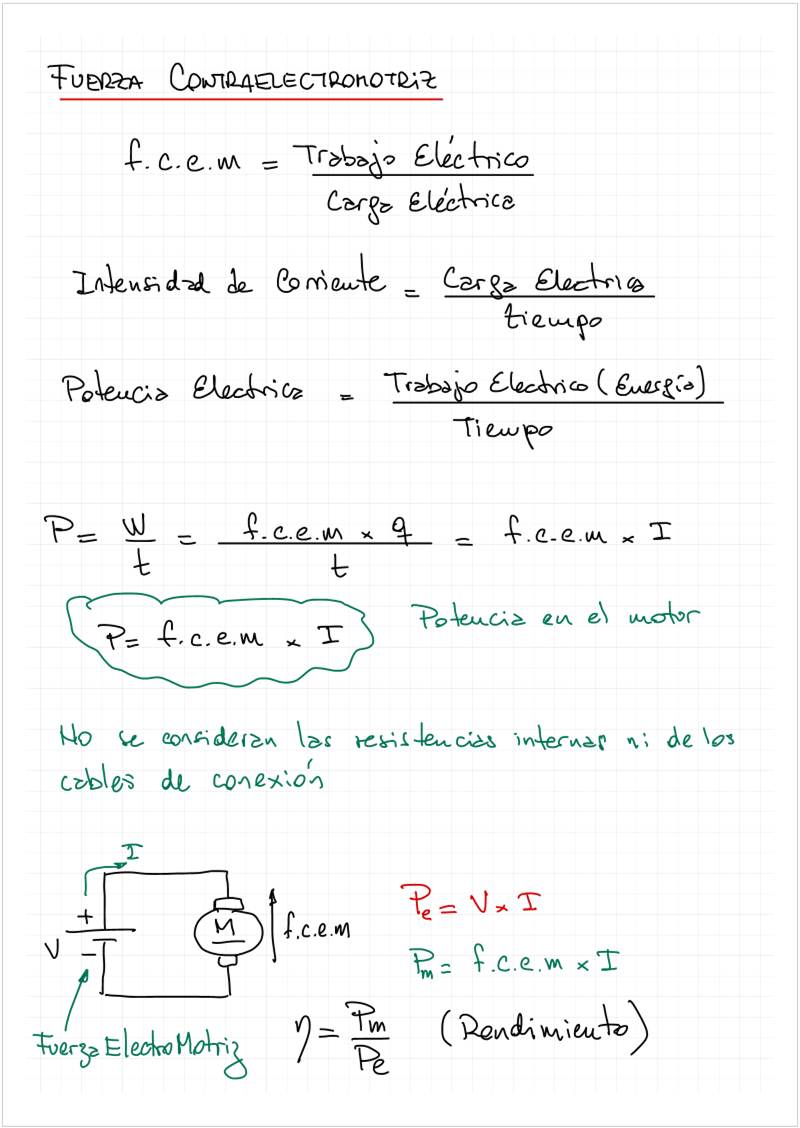 FUERZA CONTRAELECTROMOTRIZ
f.c.e.m = Trabajo Eléctrico / Carga Eléctrica
Intensidad de Corriente = Carga Electrica / tiempo
Potencia Electrica = Trabajo Electrico (Energía) / Tiempo
P = W / t = f.c.e.m × q / t = f.c.e.m × I
P = f.c.e.m × I
Potencia en el motor
No se consideran las resistencias internas ni de los
cables de conexión
I
+
V
−
M
f.c.e.m
Fuerza ElectroMotriz
Pe = V × I
Pm = f.c.e.m × I
η = Pm / Pe (Rendimiento)